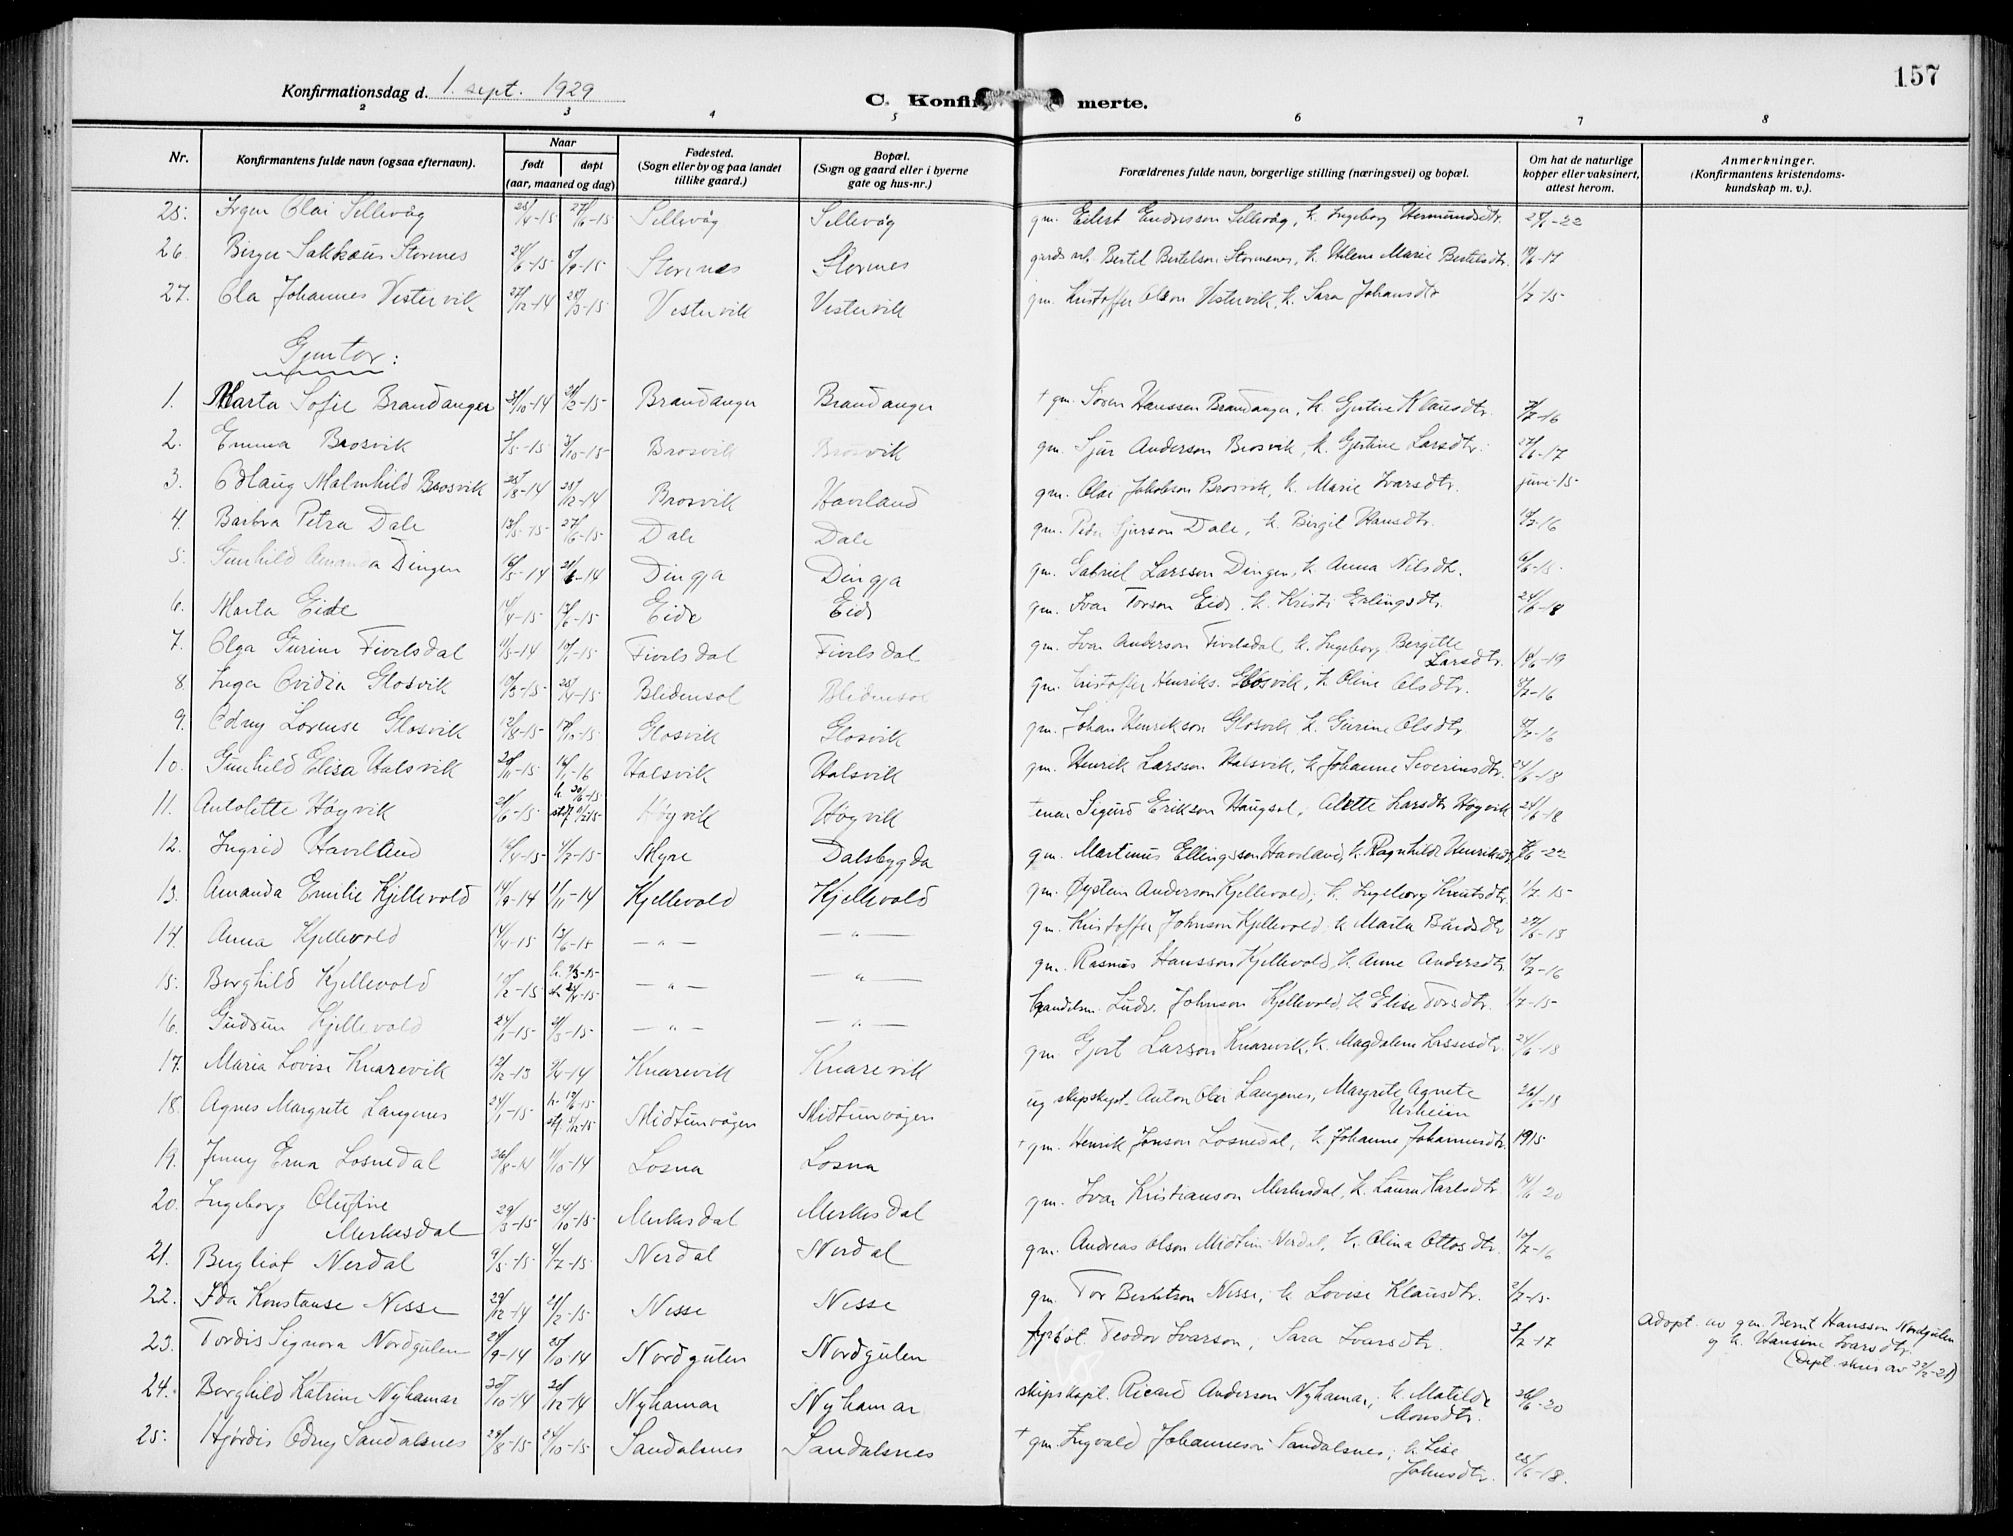 157
Konfirmationsdag d. 1. sept. 1929
C. Konfirmerte.
2 3 4 5 6 7 8
Nr. Konfirmantens fulde navn (ogsaa efternavn). Naar født døpt (aar, maaned og dag) Fødested. (Sogn eller by og paa landet tillike gaard.) Bopæl. (Sogn og gaard eller i byerne gate og hus-nr.) Forældrenes fulde navn, borgerlige stilling (næringsvei) og bopæl. Om hat de naturlige kopper eller vaksinert, attest herom. Anmerkninger. (Konfirmantens kristendomskundskap m. v.).
25. Olai Sellevåg 27/6-15 Sellevåg Sellevåg gm. Endresson Sellevåg, k. Ingeborg -22
26. Birger Sakkæus Stormes 24/6-15 8/9-15 Stormes Stormes gards arb. Bertel Bertelson k. Helene Marie Bertelsdtr. -17
27. Ola Johannes Vestervik 27/12-14 28/3-15 Vestervik Vestervik gm. Kristoffer Olson Vestervik, k. Sara Johansdtr 1/7-15
Gjentor:
1. Marta Sofie Brandanger 31/10-14 21/2-15 Brandanger Brandanger + gm. Søren Hanssen Brandanger, k. Gjertine Klausdtr. -16
2. Emma Brosvik 3/5-15 3/10-15 Brosvik Brosvik gm. Sjur Anderson Brosvik, k. Gjertine Larsdtr. 27/6-17
3. Odlaug Malmhild Brosvik 28/8-14 28/12-14 Brosvik Haveland gm. Olai Jakobson Brosvik, k. Marie Ivarsdtr. juni-15
4. Barbra Petra Dale 13/5-15 27/6-15 Dale Dale gm. Peder Sjurson Dale, k. Birgit Hansdtr. -16
5. Gunhild Amanda Dingen -14 21/6-14 Dingja Dingja gm. Gabriel Larsson Dingen, k. Anna Nilsdtr. -15
6. Marta Eide 14/4-15 -15 Eide Eide gm. Ivar Torson Eide, k. Kristi Erlingsdtr. 24/6-18
7. Olga Gurine Fivelsdal -14 -15 Fivelsdal Fivelsdal gm. Ivar Anderson Fivelsdal, k. Ingeborg Bergitte
Larsdtr. -19
8. Inga Ovidia Glosvik -15 25/4-15 Bledensol Bledensol gm. Kristoffer Henriks. Glosvik, k. Oline Olsdtr. -16
9. Odny Lovense Glosvik -15 -15 Glosvik Glosvik gm. Johan Henrikson Glosvik, k. Gurine Olsdtr -16
10. Gunhild Elisa Halsvik -15 -16 Halsvik Halsvik gm. Henrik Larsson Halsvik, k. Johanne Severinsdtr. 24/6-18
11. Antolette Høgvik -15 h. 20/6-15 Høgvik Høgvik Sigurd Erikson Haugsol, Larsdtr Høgvik 24/6-18
12. Ingrid Haveland -15 4/7-15 Myre Dalsbygda gm. Martinus Ellingsson Haveland, k. Ragnhilde Henriksdtr -22
13. Amanda Emelie Kjellevold 14/9-14 1/11-14 Kjellevold Kjellevold gm. Øystein Anderson Kjellevold, k. Ingeborg Knutsdtr. 1/7-15
14. Anna Kjellevold 14/4-15 13/6-15 — " — — " — gm. Kristoffer Johnson Kjellevold, k. Marta Bårdsdtr
15. Borghild Kjellevold -15 h. 9/3-15 — " — — " — gm. Rasmus Hansson Kjellevold, k. Anne Andersdtr. -16
16. Gudrun Kjellevold 24/1-15 21/3-15 — " — — " — handelsm. Ludv. Johnson Kjellevold, k. Elise Torsdtr. 1/7-15
17. Maria Lovise Knarevik 12/12-13 -14 Knarevik Knarevik gm. Gjert Larson Knarevik, k. Magdalene Lassesdtr. 24/6-18
18. Agnes Margrete Langenes 24/1-15 h. 13/6-15 Midtunvågen Midtunvågen ug skipskapt. Anton Olai Langenes, Margrete Agnete
Urheim 26/6-18
19. Jenny Erna Losnedal 26/8-14 11/10-14 Losna Losna + gm. Henrik Jonson Losnedal, k. Johanne Johannesdtr. 1915
20. Ingeborg Olufine
Merkesdal 29/3-15 24/10-15 Merkesdal Merkesdal gm. Ivar Kristianson Merkesdal, k. Laura Karlsdtr. -20
21. Bergliot Nerdal 9/5-15 4/7-15 Nerdal Nerdal gm. Andreas Olson Midtun-Nerdal, k. Olina Ottosdtr. -16
22. Ida Konstanse Nesse 29/12-14 21/2-15 Nesse Nesse gm. Tor Bertelson Nesse, k. Lovise Klausdtr. 2/7-15
23. Tordis Signora Nordgulen 24/9-14 25/10-14 Nordgulen Nordgulen fyrbøt. Teodor Ivarson, Sara Ivarsdtr. 3/7-17 Adopt. av gm. Bernt Hansson Nordgulen
og k. Hansine Ivarsdtr.
24. Borghild Katrine Nyhamar 30/10-14 26/12-14 Nyhamar Nyhamar skipskapt. Ricard Anderson Nyhamar, k. Matilde
Monsdtr. 26/6-20
25. Hjørdis Odny Sandalsnes 29/8-15 24/10-15 Sandalsnes Sandalsnes + gm. Ingvald Johanneson Sandalsnes, k. Lise
Johnsdtr. 28/6-18.